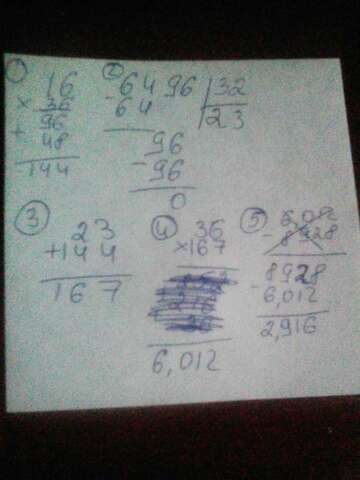 ① 16
× 36
+ 96
48
144
② 6496 |32
- 64 |23
96
- 96
0
③ 23
+144
167
④ 36
×167
6,012
⑤ 8928
- 6,012
2,916